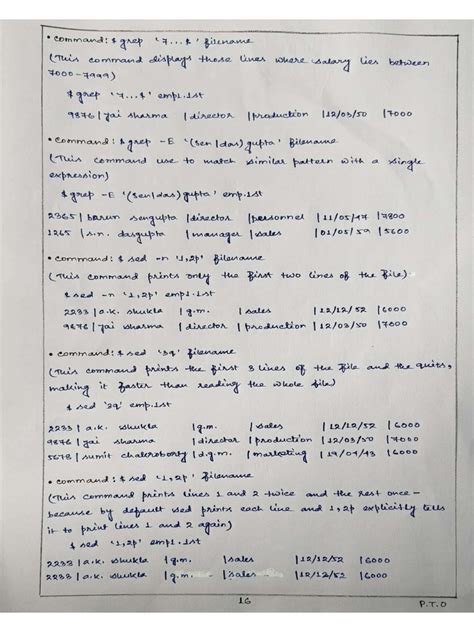 • command: $ grep '7...$' filename
(This command displays those lines where salary lies between
7000-7999)
$ grep '7...$' emp1.lst
9876 | jai sharma | director | production | 12/03/50 | 7000
• command: $ grep -E '(sen|das)gupta' filename
(This command use to match similar pattern with a single
expression)
$ grep -E '(sen|das)gupta' emp.lst
2365 | barun sengupta | director | personnel | 11/05/47 | 7800
1265 | s.n. dasgupta | manager | sales | 01/05/59 | 5600
• command: $ sed -n '1,2p' filename
(This command prints only the first two lines of the file).
$ sed -n '1,2p' emp1.lst
2233 | a.k. shukla | g.m. | sales | 12/12/52 | 6000
9876 | jai sharma | director | production | 12/03/50 | 7000
• command: $ sed '3q' filename
(This command prints the first 3 lines of the file and the quits,
making it faster than reading the whole file)
$ sed '2q' emp.lst
2233 | a.k. shukla | g.m. | sales | 12/12/52 | 6000
9876 | jai sharma | director | production | 12/03/50 | 7000
5678 | sumit chakroborty | d.g.m. | marketing | 19/04/43 | 6000
• command: $ sed '1,2p' filename
(This command prints lines 1 and 2 twice and the rest once-
because by default sed prints each line and 1,2p explicitly tells
it to print lines 1 and 2 again)
$ sed '1,2p' emp1.lst
2233 | a.k. shukla | g.m. | sales | 12/12/52 | 6000
2233 | a.k. shukla | g.m. | sales | 12/12/52 | 6000
16
P.T.O